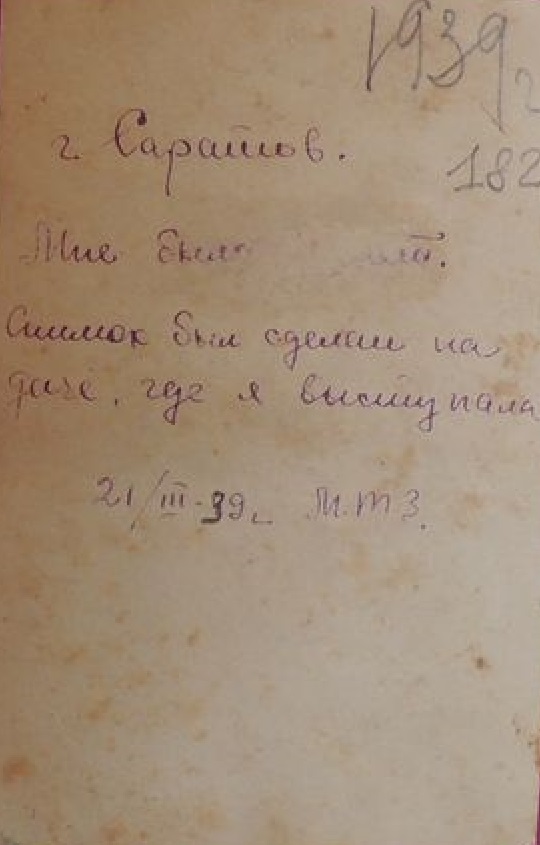 1939 г
г. Саратов.
182
Мне было
Снимок был сделан на
даче, где я выступала
21/III-39г. М.Т.З.